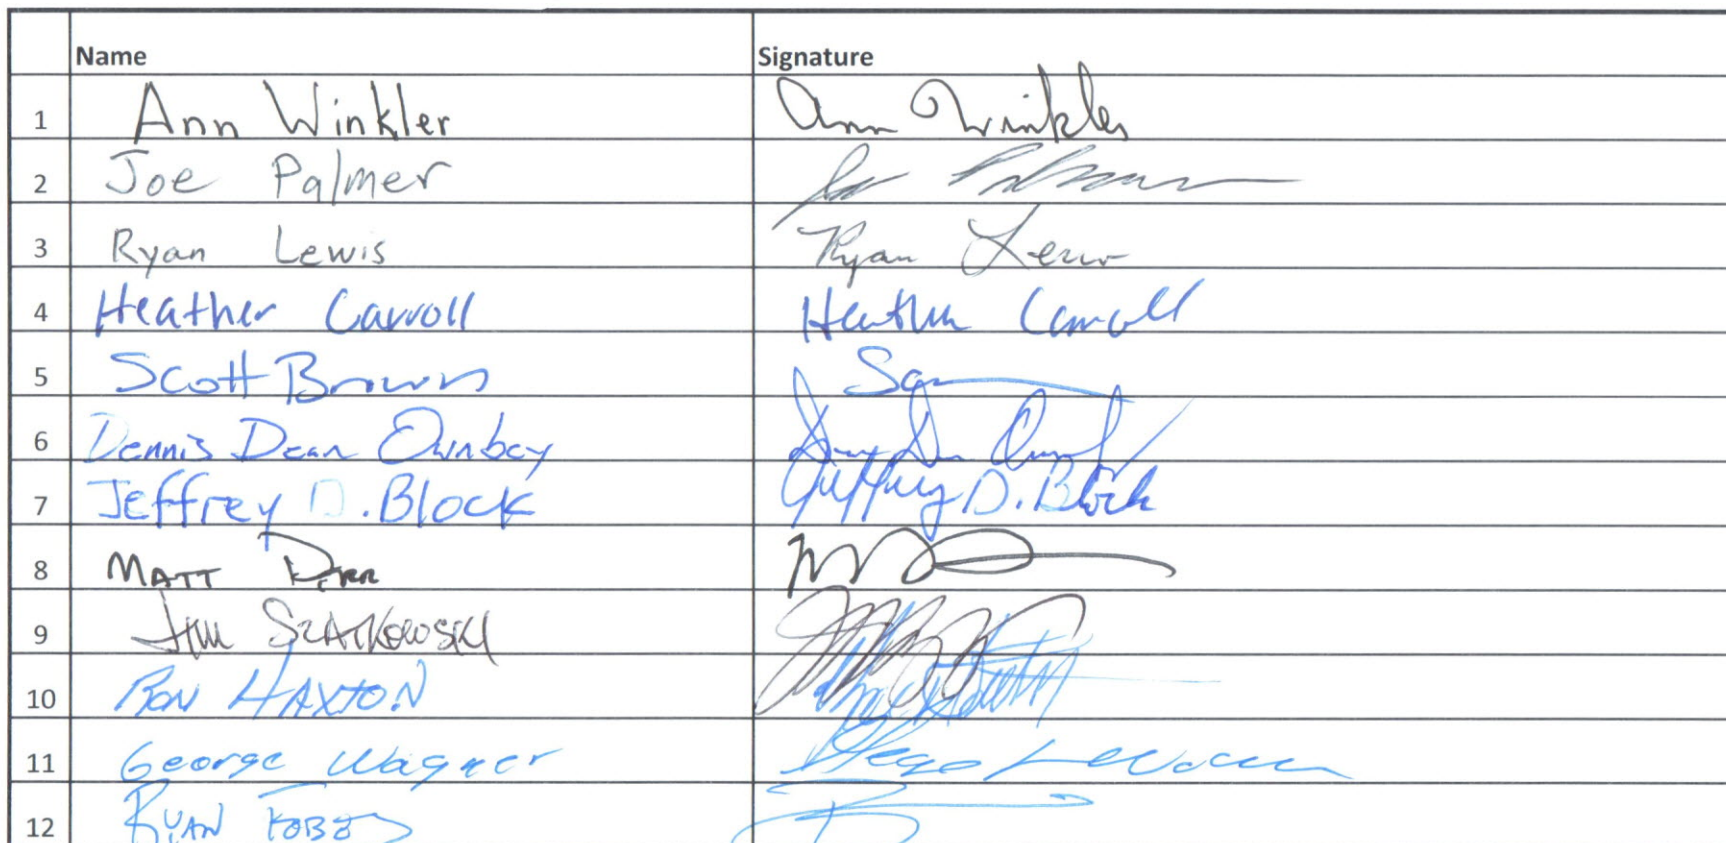 Name Signature
1 Ann Winkler Ann Winkler
2 Joe Palmer Joe Palmer
3 Ryan Lewis Ryan Lewis
4 Heather Carroll Heather Carroll
5 Scott Brown
6 Dennis Dean Ownbey
7 Jeffrey D. Block Jeffrey D. Block
8 Matt
9 Jim Szatkowski
10 Ron Haxton
11 George Wagner
12 Ryan